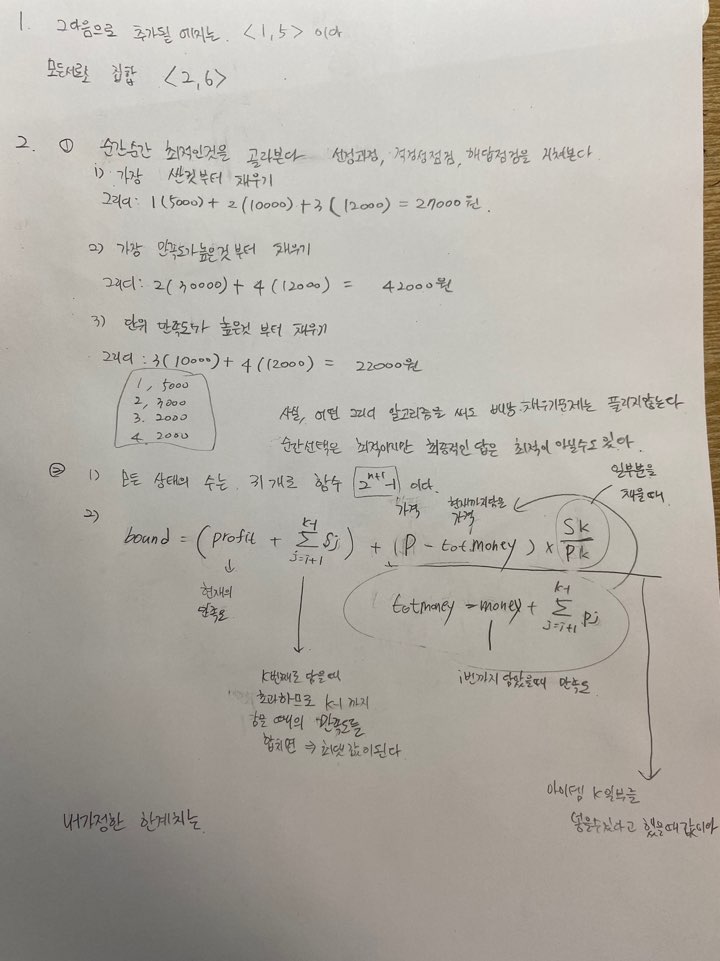 1. 그다음으로 추가될 에지는. <1,5> 이다
모든서로소 집합 <2,6>
2. ① 순간순간 최적인것을 골라본다 선정과정, 적정성점검, 해답점검을 거쳐본다.
1) 가장 싼것부터 채우기
그리디: 1(5000) + 2(10000) + 3(12000) = 27000원.
2) 가장 만족도가높은것부터 채우기
그리디: 2(30000) + 4(12000) = 42000원
3) 단위 만족도가 높은것 부터 채우기
그리디: 3(10000) + 4(12000) = 22000원
1, 5000
2, 3000
3. 2000
4. 2000
사실, 어떤 그리디 알고리즘을 써도 배낭 채우기문제는 풀리지않는다
순간선택은 최적이지만 최종적인 답은 최적이 아닐수도 있다.
② 1) 모든 상태의 수는 31개로 함수 2^{n+1}-1 이다.
일부분을
채울때.
2) 가격 현재까지담은
가격
bound = (profit + \sum_{j=i+1}^{k-1} Sj) + (P - tot.money) × Sk/Pk
현재의
만족도
totmoney = money + \sum_{j=i+1}^{k-1} Pj
i번까지 담았을때 만족도
k번째로 담을때
초과하므로 k-1 까지
담을 때의 만족도들
합치면 ⇒ 최댓값이된다
아이템 k 일부를
넣을수있다고 했을때 값이다
내가정한 한계치는